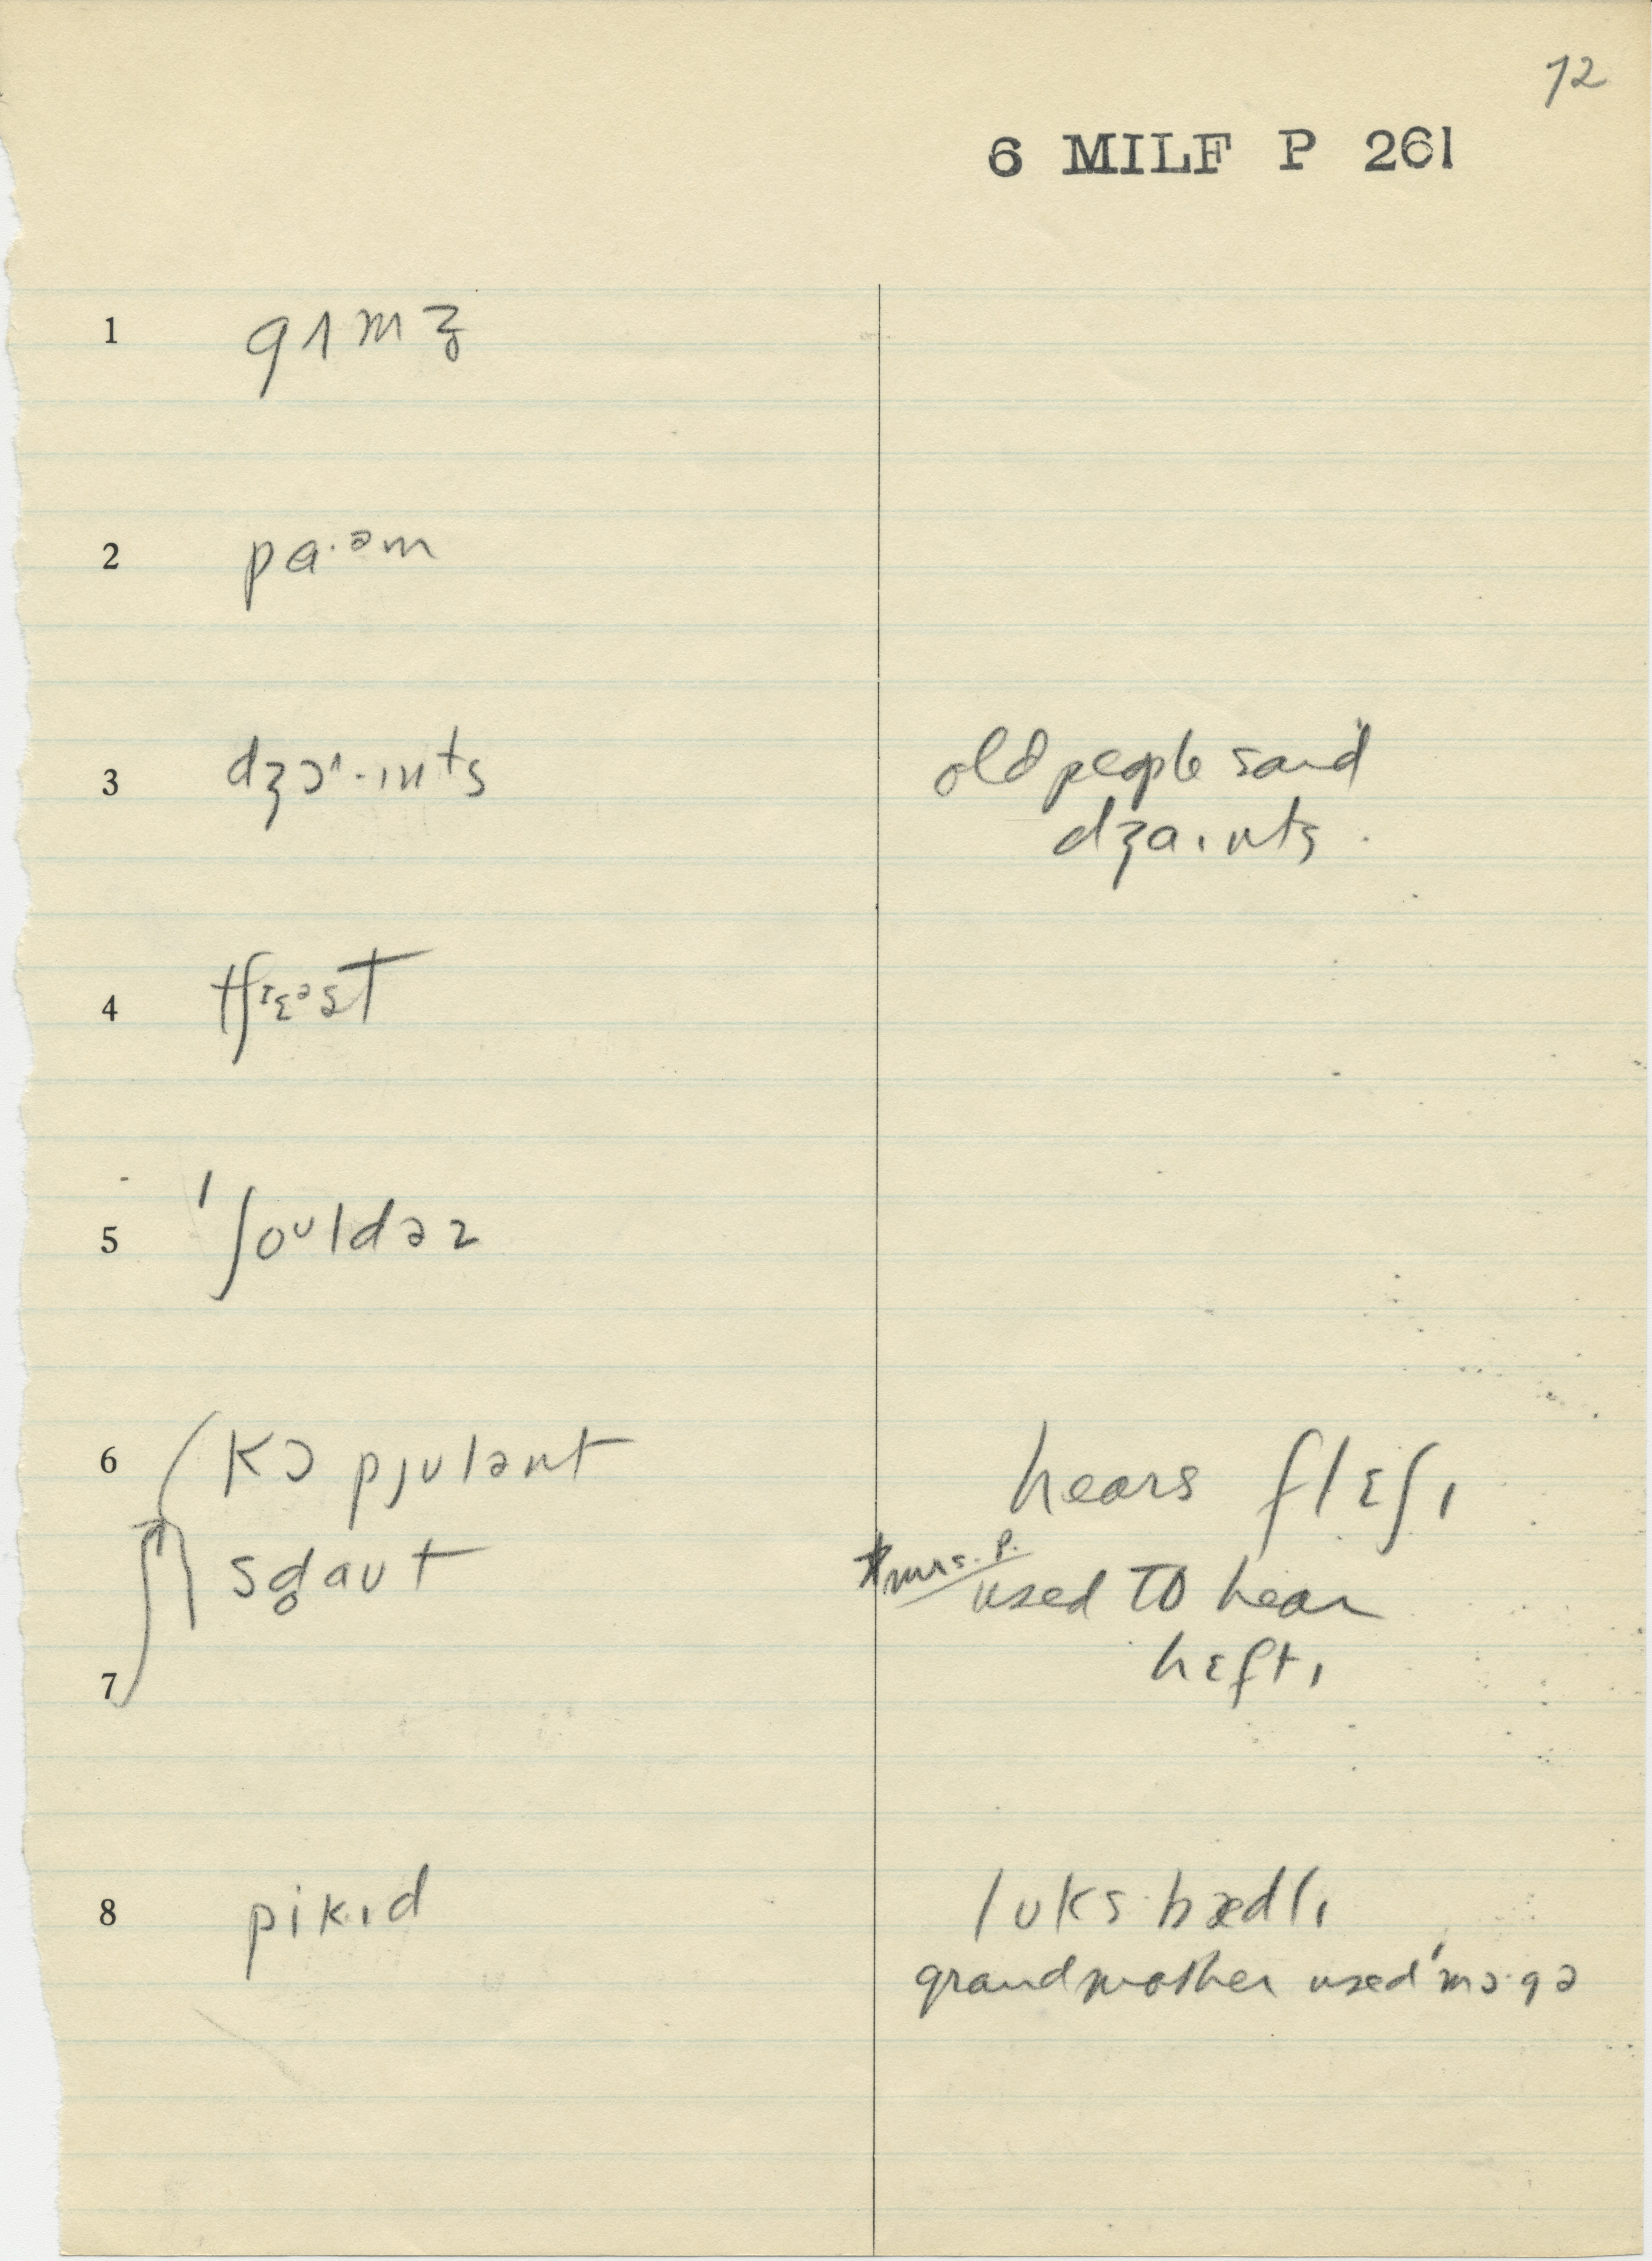 72
6 MILF P 261
1 gʌmz̥
2 pɑ·əm
3 dʒɔ^·ɪnts
old people said
dʒaɪnts.
4 tʃɪɛəst
5 ˈʃoʊldəz
6 kɔpjʊlənt
hears flɛʃɪ
sg̥aʊt
*mrs. P.
used to hear
hɛftɪ
7
8 pikɪd
lʊks bædlɪ
grandmother used ˈmɔ·gə